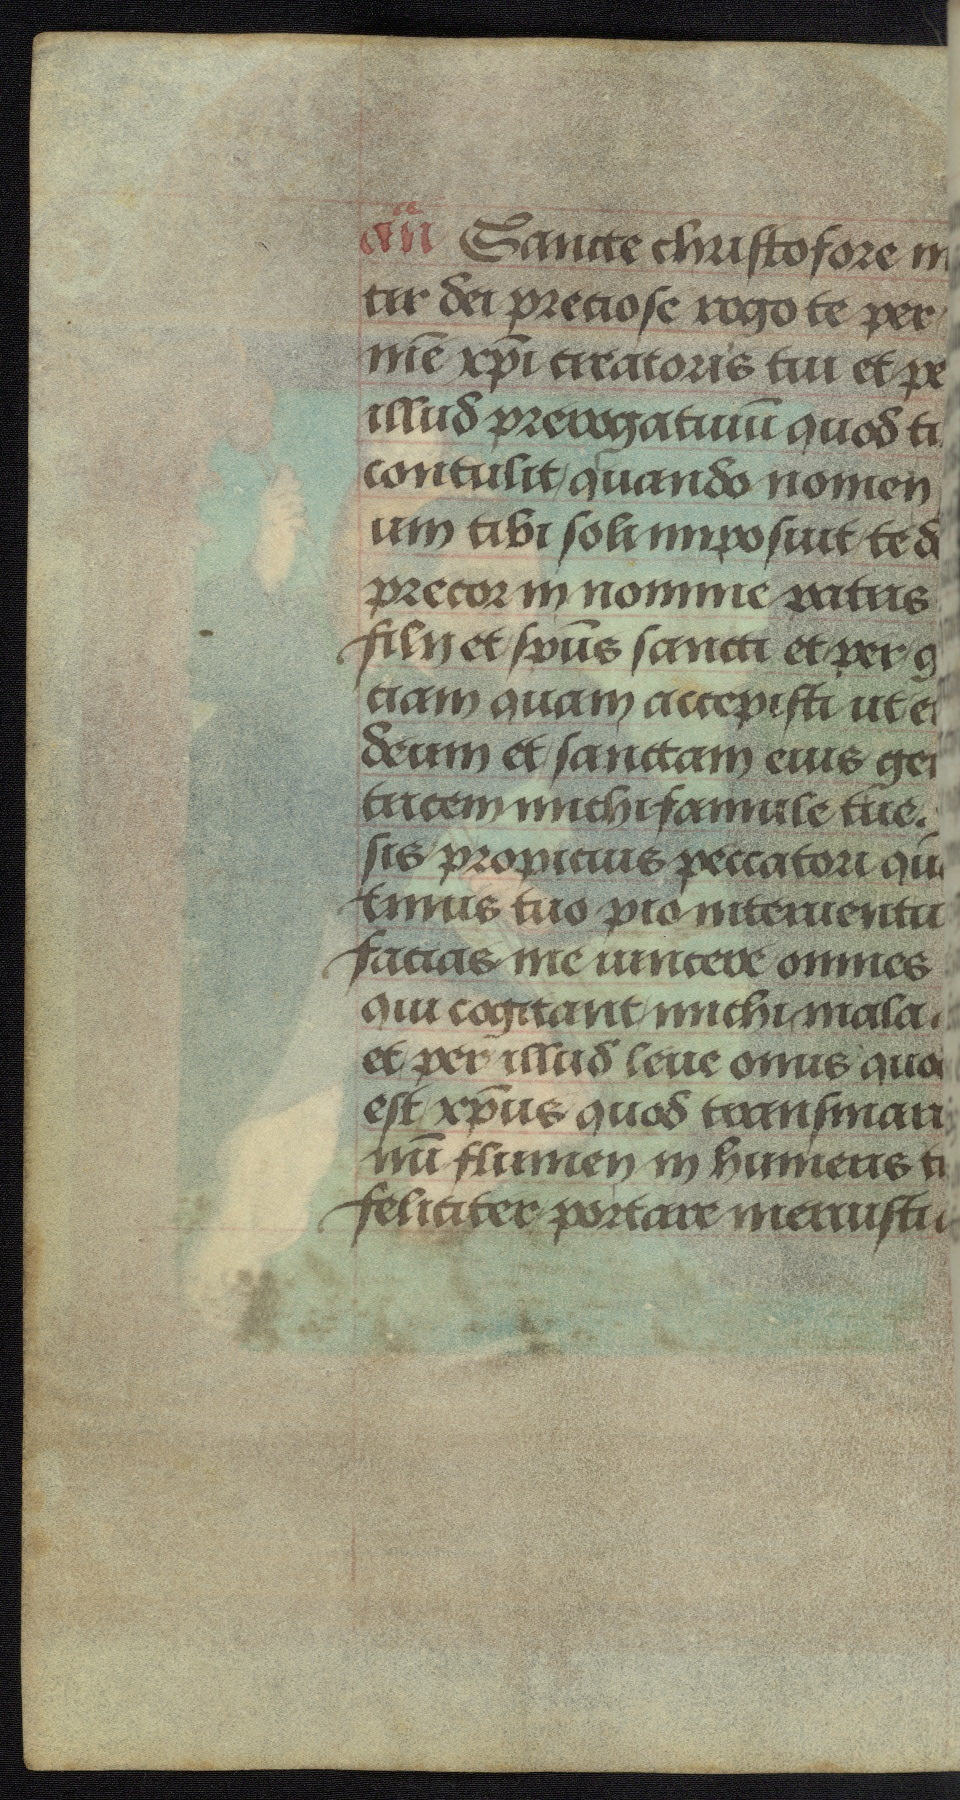 an̄ Sancte christofore m
tir dei preciose rogo te per
nōīe xp̄i creatoris tui et pe
illud prerogatiuū quod ti
contulit quando nomen
um tibi soli imposuit te de
precor in nomine patris
filij et sp̄us sancti et per g
ciam quam accepisti ut e
deum et sanctam eius gen
tricem michi famule tue.
sis propicius peccatori qu
tinus tuo pio interuentu
facias me uincere omnes
qui cogitant michi mala.
et per illud leue onus quo
est xp̄us quod transmari
nū flumen in humeris t
feliciter portare meruisti